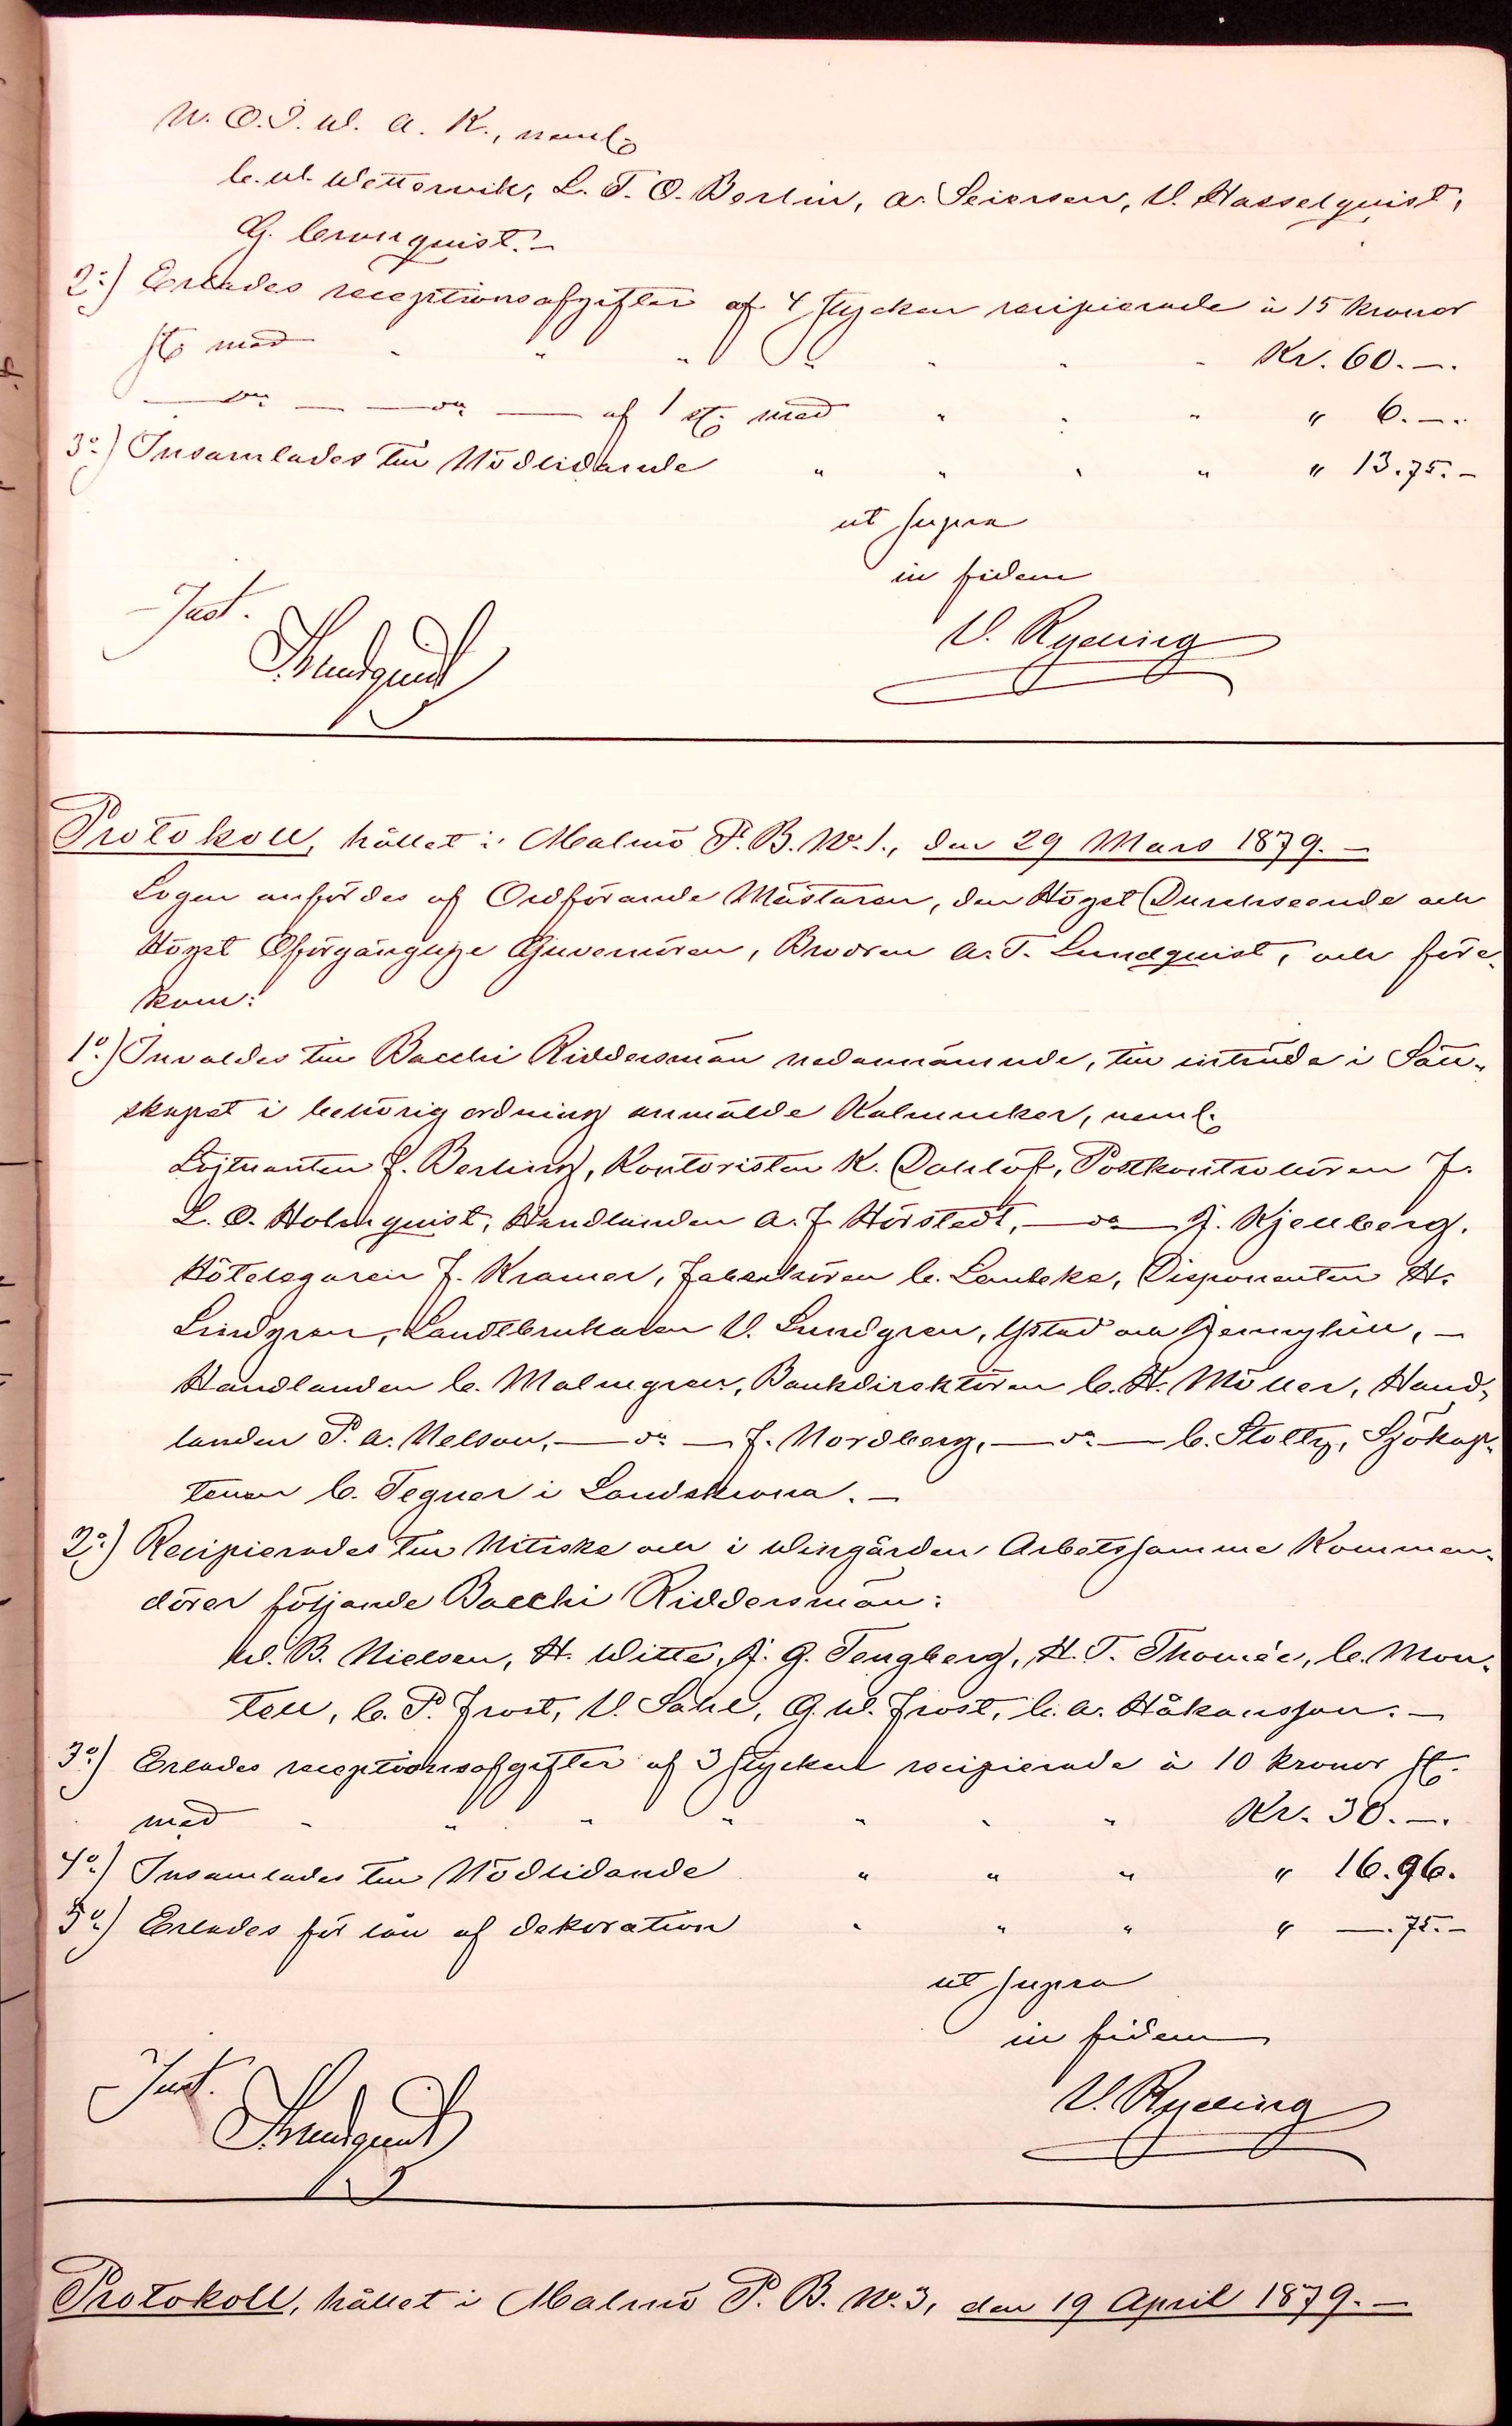 N. O. I. W. A. K., neml.
C. W. Wetterwik, L. T. O. Berlin, A. Seiersen, V. Hasselquist,
G. Cronquist. –
2:) Erlades receptionsafgifter af 4 stycken recipierade à 15 kronor
st. med " " " " " " " Kr. 60. –.
— do — — do — af 1 st. med " " " " 6. –.
3:) Insamlades till Nödlidande " " " " " 13.75. –
ut supra
in fidem
Just.
V. Rydling
Lundquist
Protokoll, hållet i Malmö P. B. No. 1., den 29 Mars 1879. –
Logen anfördes af Ordförande Mästaren, den Högst Durchseende och
Högst Oförgänglige Guvernören, Brodren A. T. Lundquist, och före-
kom:
1o.) Invaldes till Bacchi Riddersmän nedannämnde, till inträde i Säll-
skapet i behörig ordning anmälde Kalmucker, neml.
Löjtnanten F. Berling, Kontoristen K. Dahlöf, Postkontrollören J.
L. O. Holmquist, Handlanden A. F. Hörstedt, — do — J. Kjellberg.
Hôtelegaren F. Kramer, Fabrikören C. Lembke, Disponenten H.
Lindgren, Landtbrukaren V. Lundgren, Ystad och Jennyhill, –
Handlanden C. Malmgren, Bankdirektören C. H. Möller, Hand-
landen P. A. Nelson, — do — F. Nordberg, — do — C. Stoltz, Sjökap-
tenen C. Tegner i Landskrona. –
2o.) Recipierades till Nitiske och i Wingården Arbetssamme Kommen-
dörer följande Bacchi Riddersmän:
W. B. Nielsen, H. Witte, J. G. Tengberg, H. T. Thomée, C. Mon-
tell, C. P. Frost, V. Sahl, G. W. Frost, C. A. Håkansson. –
3o.) Erlades receptionsafgifter af 3 stycken recipierade à 10 kronor st.
med " " " " " " " Kr. 30. –.
4o.) Insamlades till Nödlidande " " " " 16.96.
5o.) Erlades för lån af dekoration " " " " –.75. –
ut supra
in fidem
Just.
V. Rydling
Lundquist
Protokoll, hållet i Malmö P. B. No. 3, den 19 April 1879. –